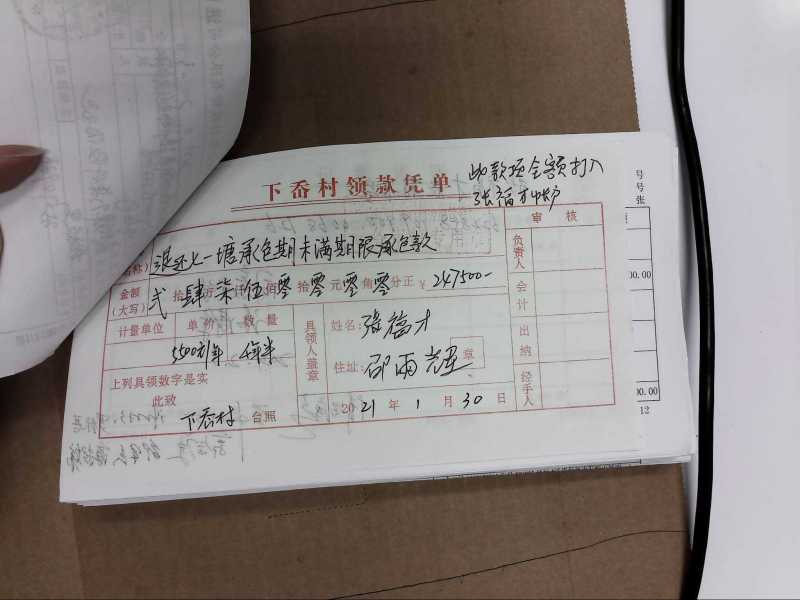 下岙村领款凭单
此款项全额打入
张福才帐户
审核
名称)
退还上一塘承包期未满期限承包款
负责人
金额
(大写)
弍拾肆万柒仟伍佰零拾零元零角零分正 ¥ 247500-
会计
计量单位 单价 数量
具领人盖章
姓名: 张福才
出纳
5500元/年 4年半
住址: 邵雨
章
上列具领数字是实
此致
经手人
下岙村 台照
2021年1月30日
号
号
张
00.00
00.00
12